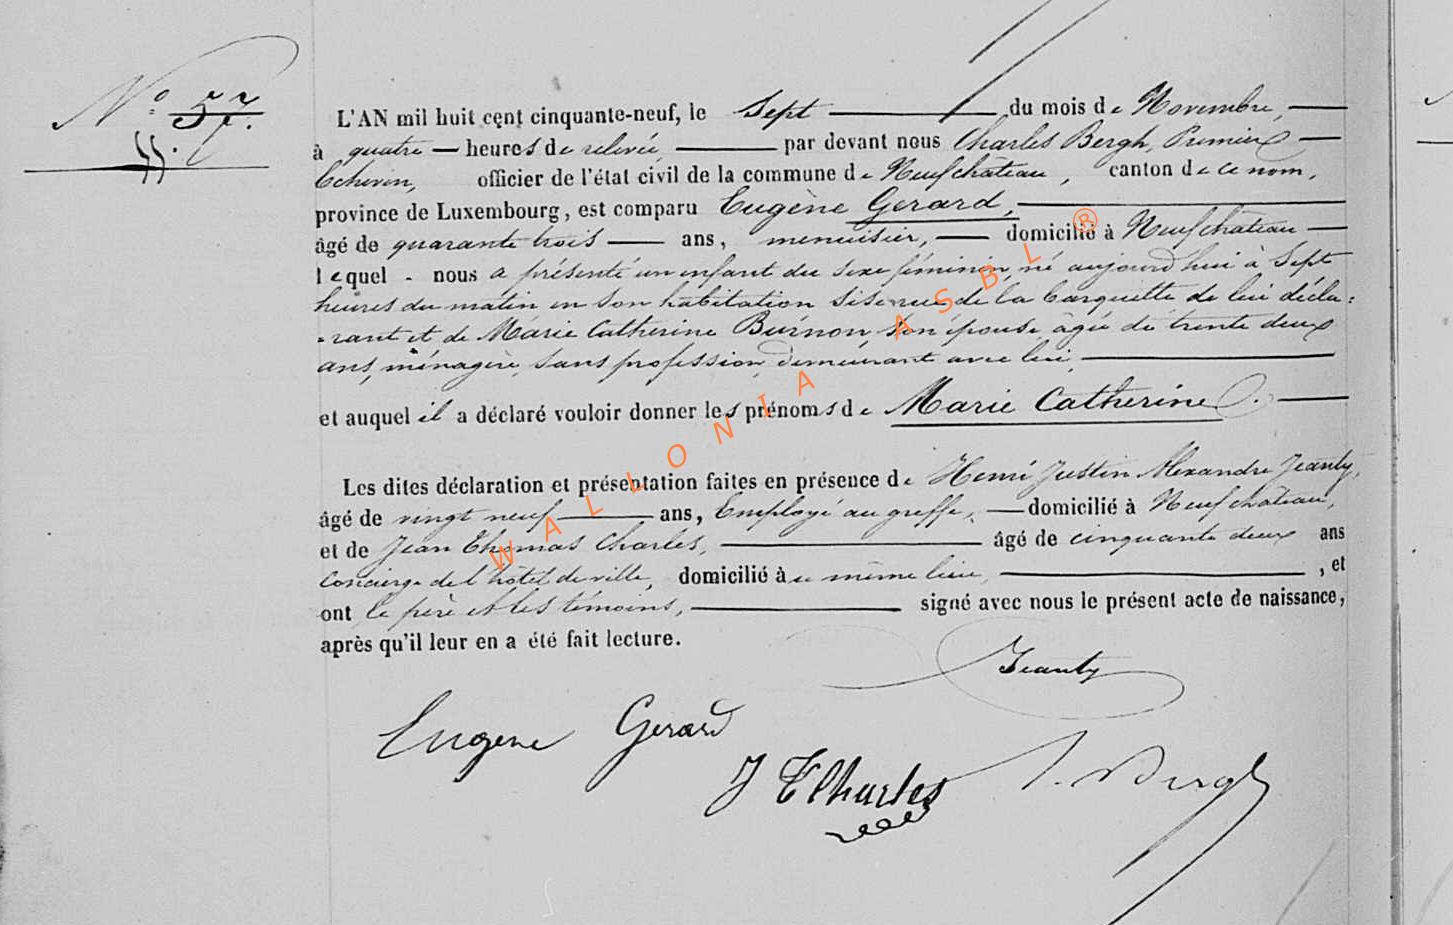 N° 57.
55.
L'AN mil huit cent cinquante-neuf, le Sept du mois de Novembre,
à quatre heures de relevée, par devant nous Charles Bergh, Premier
Echevin, officier de l'état civil de la commune de Neufchâteau, canton de ce nom,
province de Luxembourg, est comparu Eugène Gerard,
âgé de quarante trois ans, menuisier, domicilié à Neufchâteau
lequel nous a présenté un enfant du sexe féminin né aujourd'hui à Sept
heures du matin en son habitation sise rue de la barquette de lui décla:
:rant et de Marie Catherine Burnon, son épouse âgée de trente deux
ans, ménagère, sans profession, demeurant avec lui,
et auquel il a déclaré vouloir donner les prénoms de Marie Catherine.
Les dites déclaration et présentation faites en présence de Henri Justin Alexandre Jeanty,
âgé de vingt neuf ans, Employé au greffe, domicilié à Neufchâteau,
et de Jean Thomas Charles, âgé de cinquante deux ans
concierge de l'hôtel de ville, domicilié à ce même lieu, , et
ont le père et les témoins, signé avec nous le présent acte de naissance,
après qu'il leur en a été fait lecture.
Jeanty
Eugene Gerard
J T Charles
Bergh
WALLONIA ASBL ®